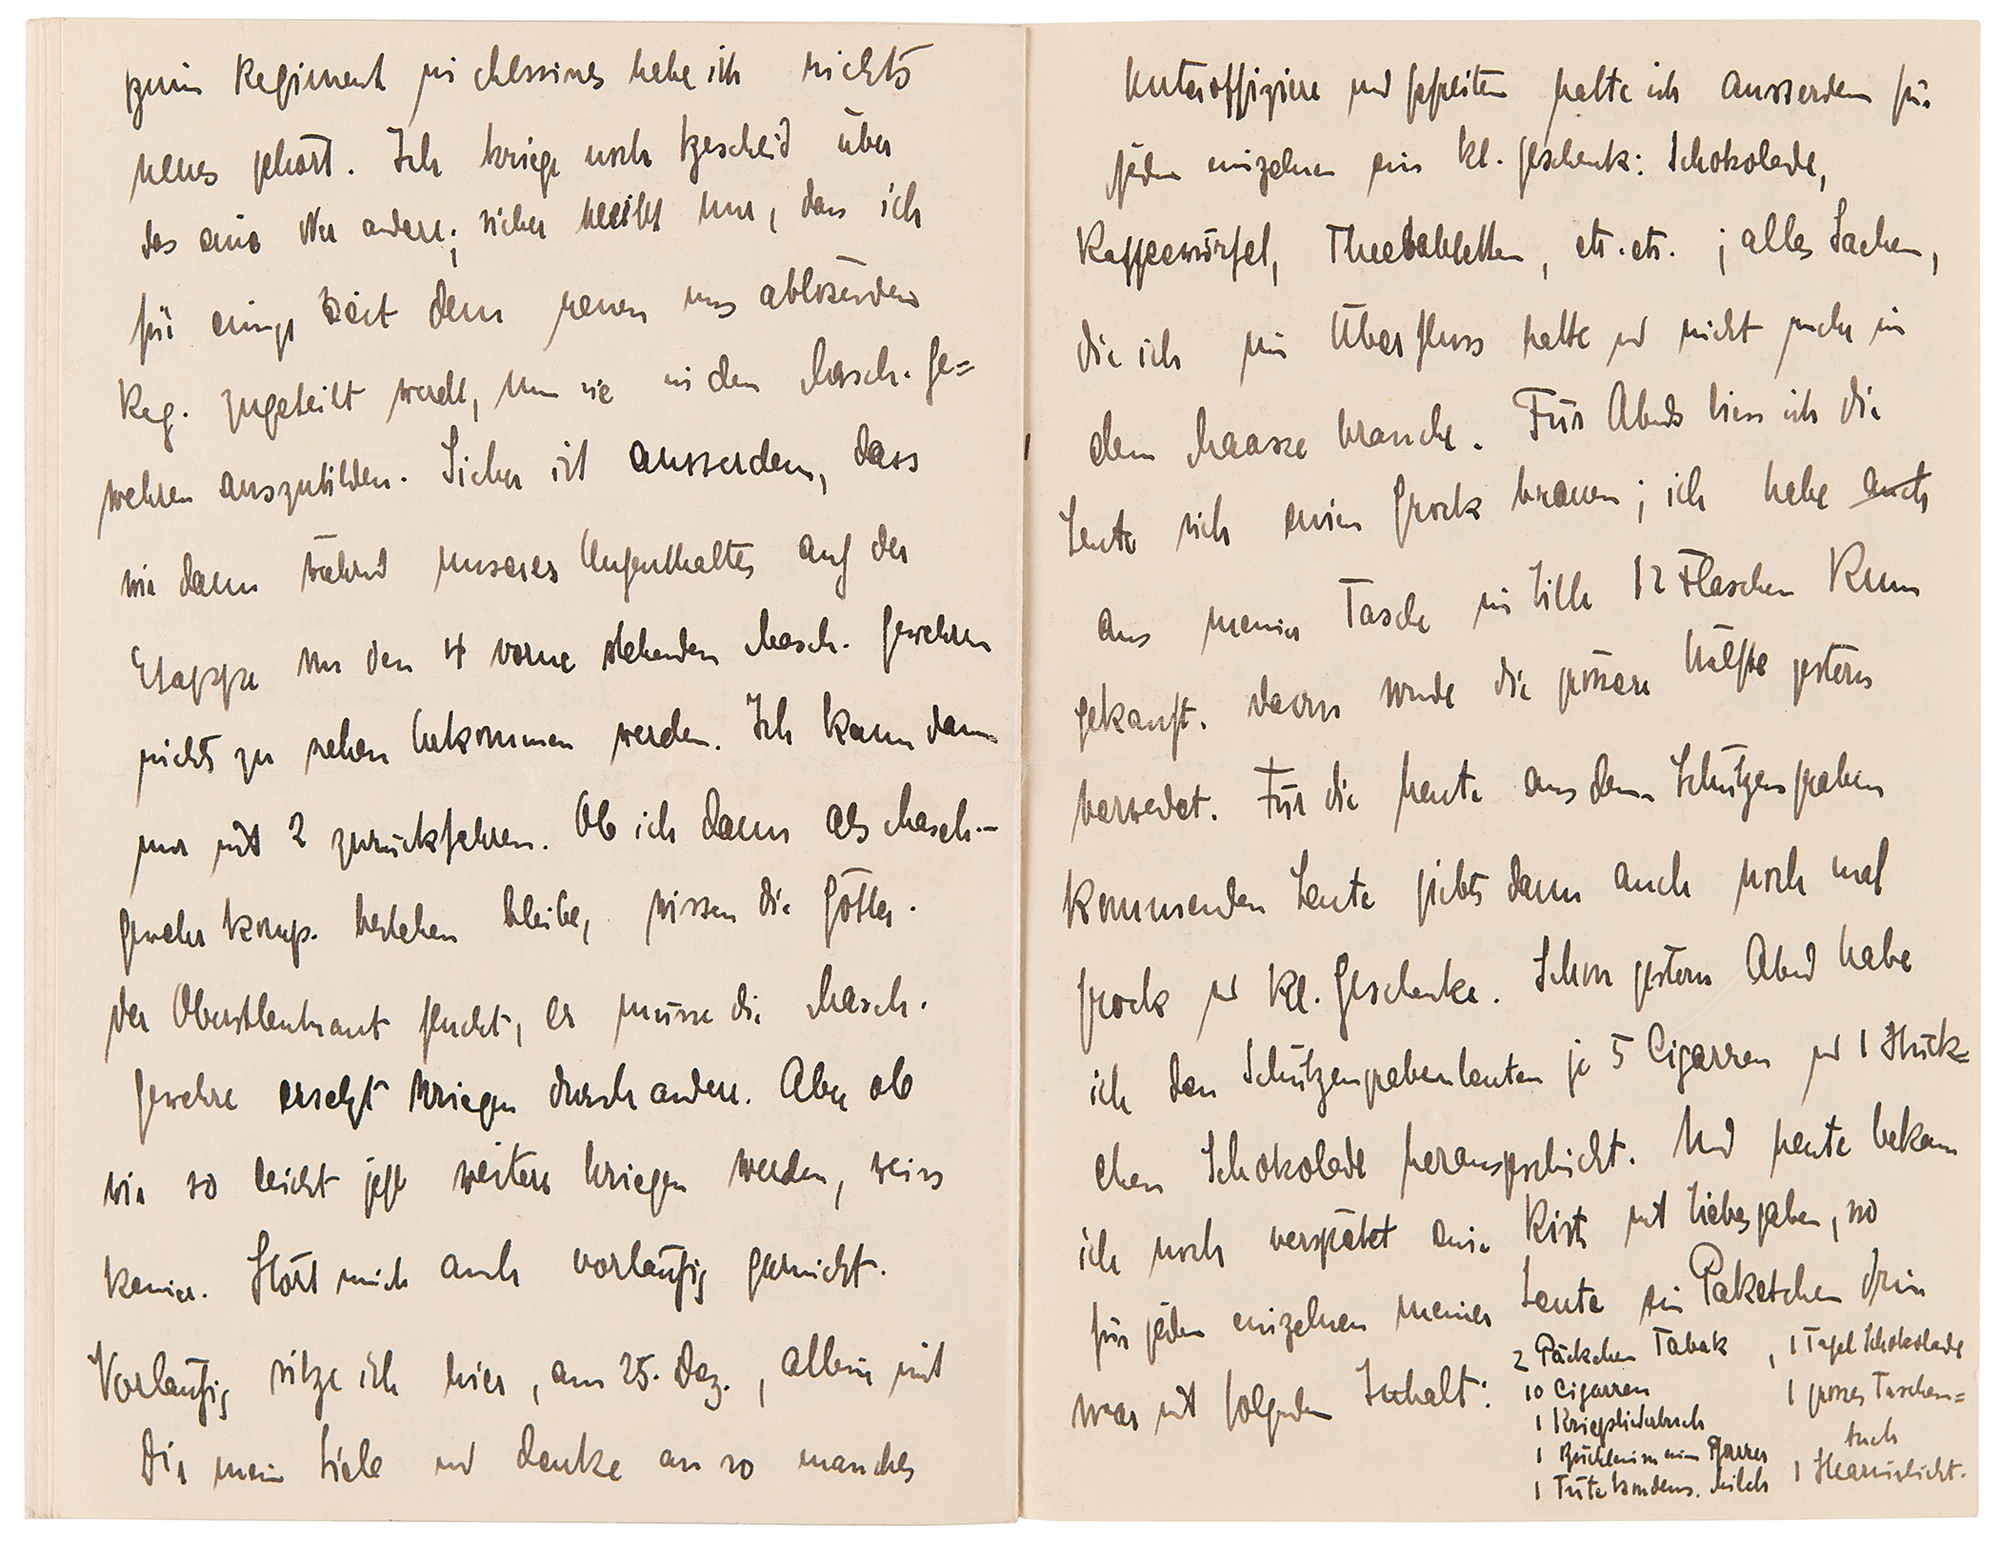 zum Regiment in Messines habe ich nichts
neues gehört. Ich kriege noch Bescheid über
das eine oder andere; sicher bleibt nur, dass ich
für einige Zeit dem neuen uns ablösenden
Reg. zugeteilt werde, um sie in den Masch. Ge=
wehren auszubilden. Sicher ist ausserdem, dass
wir dann während unseres Aufenthaltes auf der
Etappe von den 4 vorne stehenden Masch. Gewehren
nichts zu sehen bekommen werden. Ich kann dann
nur mit 2 zurückfahren. Ob ich dann als Masch.-
gewehr komp. bestehen bleibe, wissen die Götter.
Der Oberstleutnant flucht, er müsse die Masch.
gewehre ersetzt kriegen durch andere. Aber ob
wir so leicht jetzt weitere kriegen werden, weiss
keiner. Stört mich auch vorläufig garnicht.
Vorläufig sitze ich hier, am 25. Dez., allein mit
Dir mein Liebe und denke an so manches
Unteroffiziere und Gefreiten hatte ich ausserdem für
jeden einzelnen ein kl. Geschenk: Schokolade,
Kaffeewürfel, Theetabletten, etc. etc. ; alles Sachen,
die ich im Überfluss hatte und nicht mehr in
dem Maasse brauche. Für Abends liess ich die
Leute sich einen Grock brauen; ich habe auch
aus meiner Tasche in Lille 12 Flaschen Rum
gekauft. Davon wurde die grössere Hälfte gestern
verwendet. Für die heute aus dem Schützengraben
kommenden Leute giebts dann auch noch mal
Grock und kl. Geschenke. Schon gestern Abend habe
ich den Schützengrabenleuten je 5 Cigarren und 1 Stück=
chen Schokolade herausgeschickt. Und heute bekam
ich noch verspätet eine Kiste mit Liebesgaben, wo
für jeden einzelnen meiner Leute ein Paketchen drin
war mit folgendem Inhalt:
2 Päckchen Tabak , 1 Tafel Schokolade
10 Cigarren 1 grosses Taschen=
1 Kriegsliederbuch tuch
1 Büchlein von einem Pfarrer
1 Tute kondens. Milch 1 Stearinlicht.